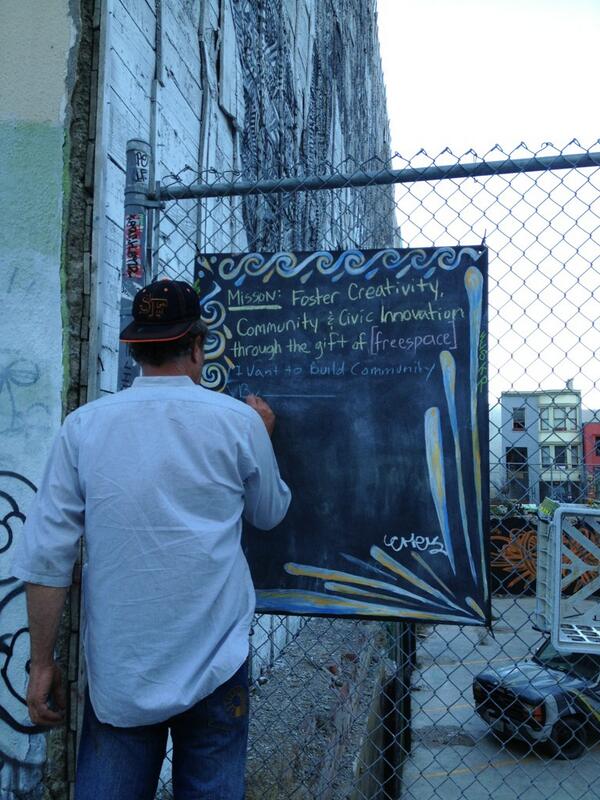 SF
MissoN: Foster Creativity,
Community & Civic Innovation
through the gift of [freespace]
I Want to build Community
By